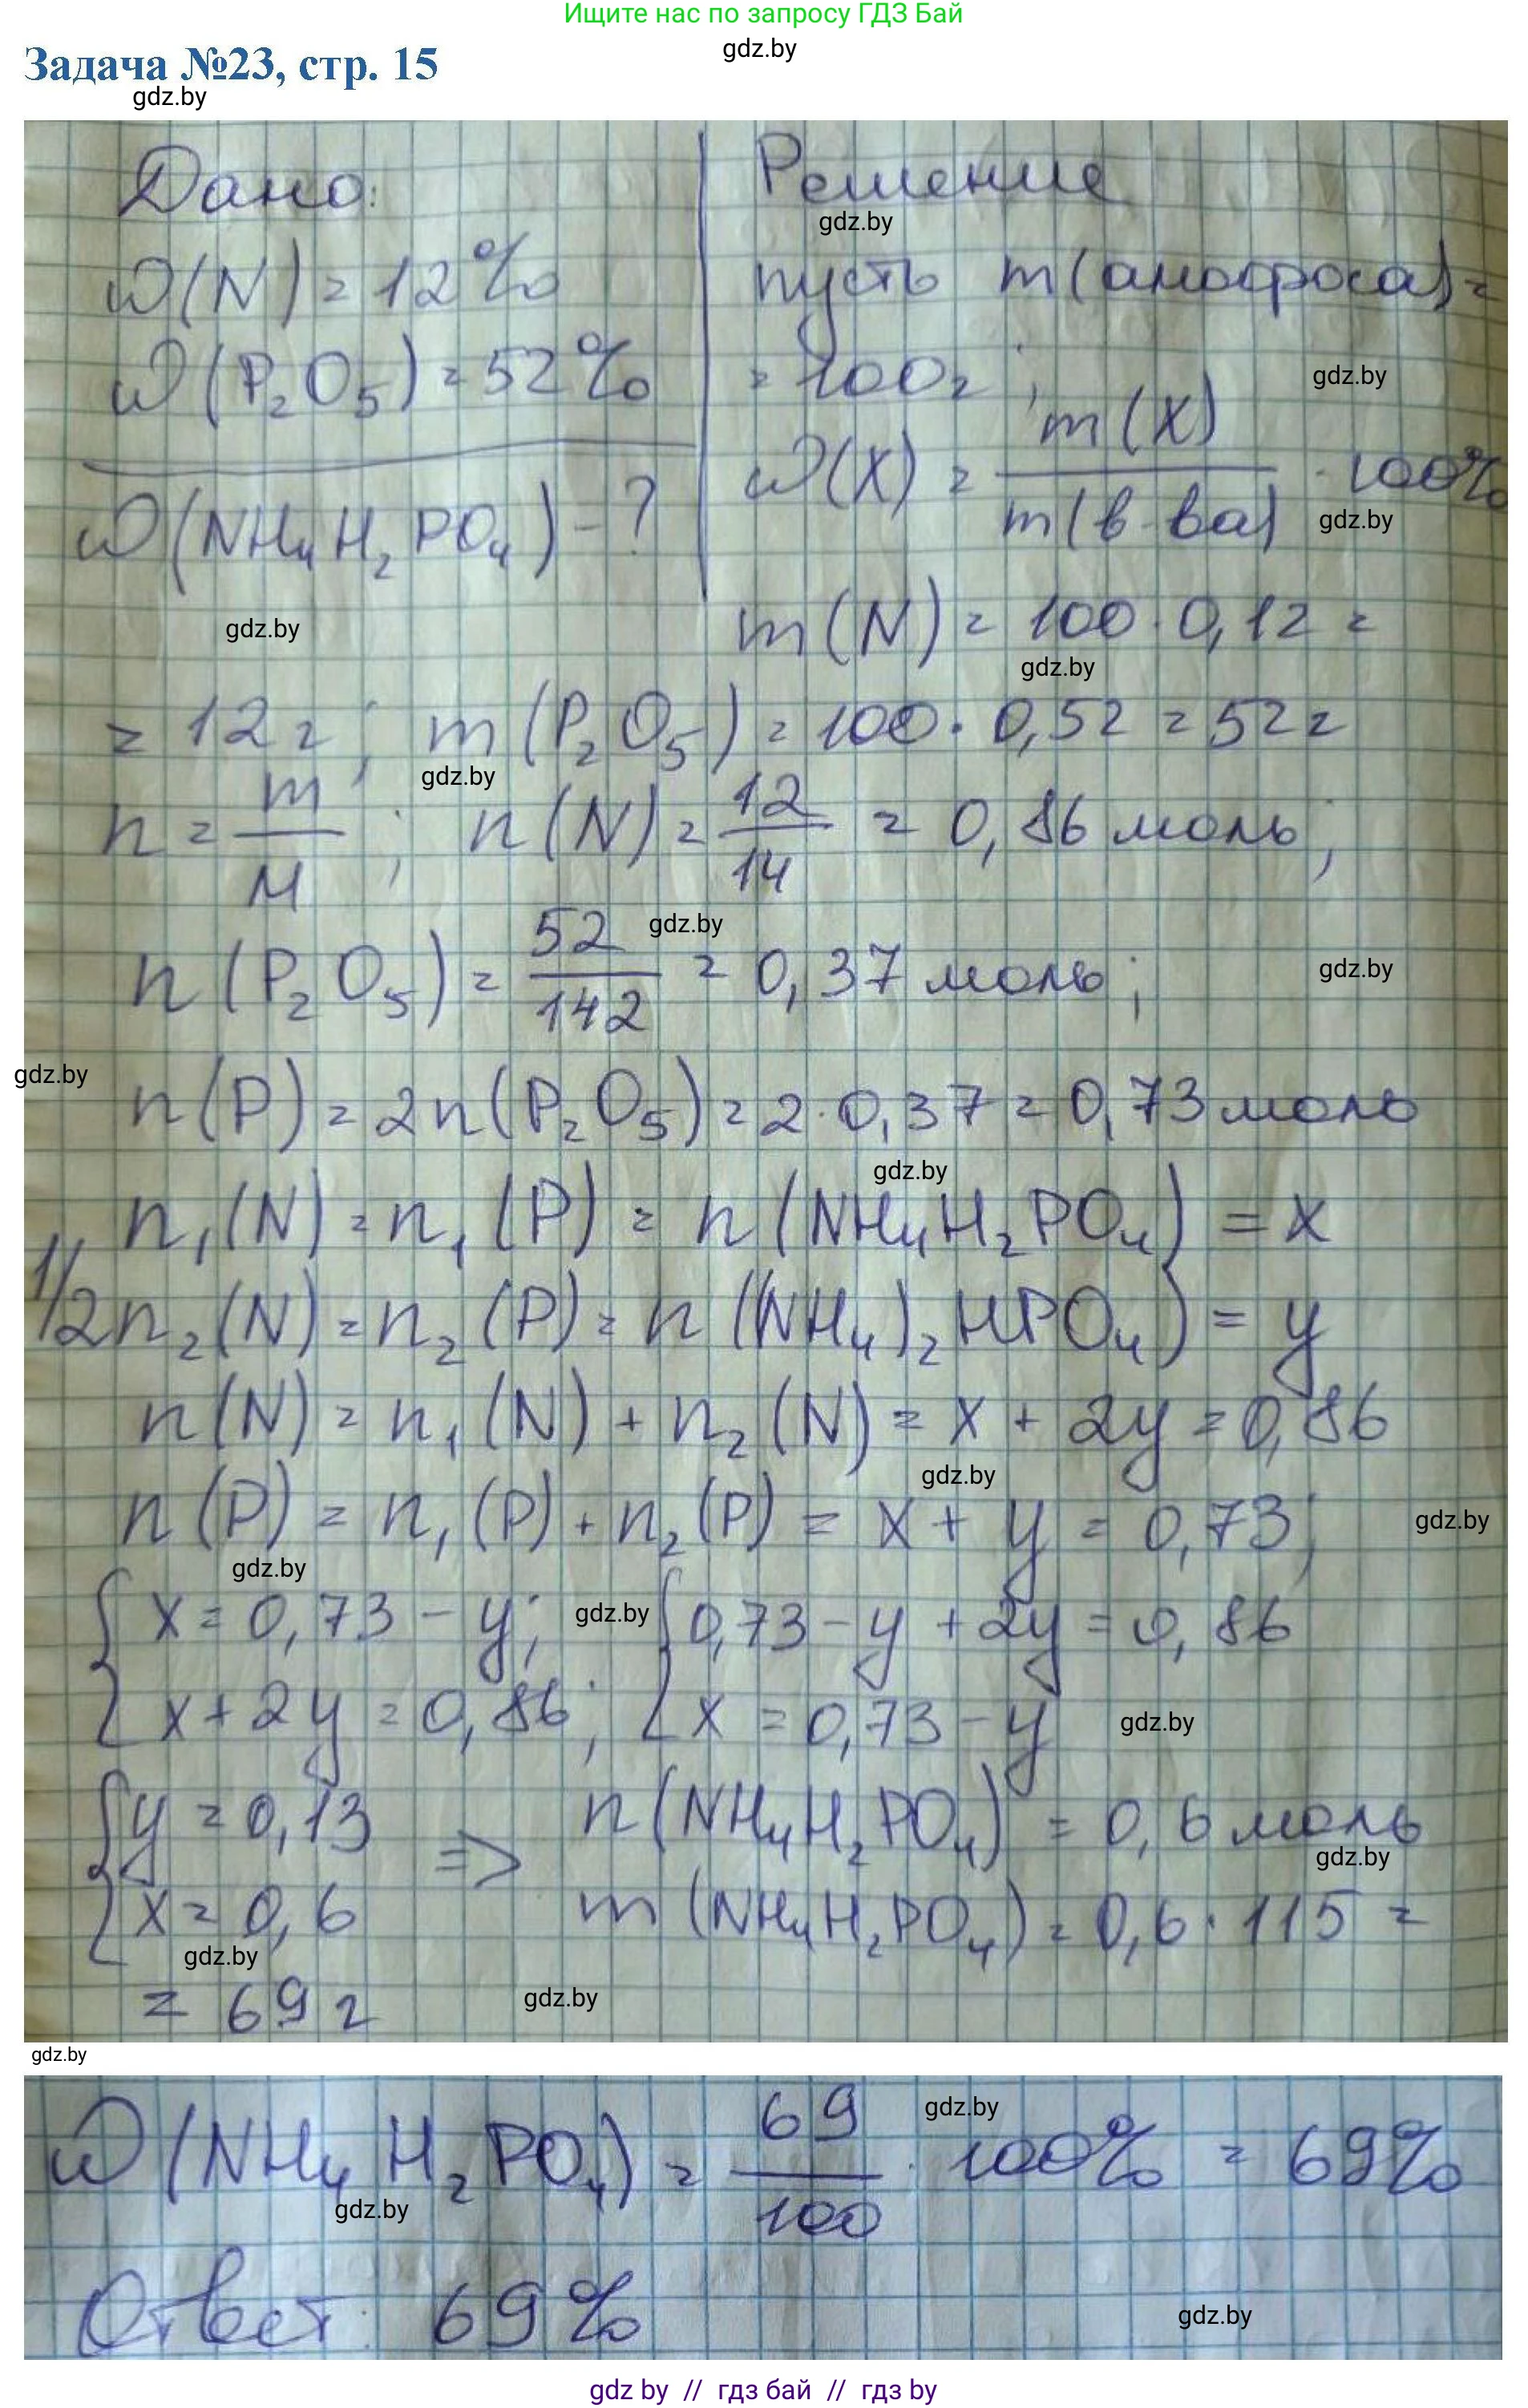 Ищите нас по запросу ГДЗ Бай
gdz.by
Задача №23, стр. 15
gdz.by
Дано: Решение
gdz.by
ω(N) = 12% пусть m(амофоса) =
ω(P₂O₅) = 52% = 100г;
gdz.by
ω(NH₄H₂PO₄) - ? ω(X) = m(X) / m(в-ва) · 100%
gdz.by
gdz.by
m(N) = 100 · 0,12 =
gdz.by
= 12г; m(P₂O₅) = 100 · 0,52 = 52г
gdz.by
n = m/M; n(N) = 12/14 = 0,86 моль;
gdz.by
n(P₂O₅) = 52/142 = 0,37 моль;
gdz.by
gdz.by
n(P) = 2n(P₂O₅) = 2·0,37 = 0,73 моль
gdz.by
n₁(N) = n₁(P) = n(NH₄H₂PO₄) = x
1/2n₂(N) = n₂(P) = n((NH₄)₂HPO₄) = y
n(N) = n₁(N) + n₂(N) = x + 2y = 0,86
gdz.by
n(P) = n₁(P) + n₂(P) = x + y = 0,73;
gdz.by
gdz.by
{x = 0,73 - y; gdz.by {0,73 - y + 2y = 0,86
x + 2y = 0,86; x = 0,73 - y
gdz.by
{y = 0,13 => n(NH₄H₂PO₄) = 0,6 моль
gdz.by
x = 0,6 m(NH₄H₂PO₄) = 0,6 · 115 =
gdz.by
= 69 г
gdz.by
gdz.by
gdz.by
ω(NH₄H₂PO₄) = 69/100 · 100% = 69%
gdz.by
Ответ: 69%
gdz.by
gdz by // гдз бай // гдз by